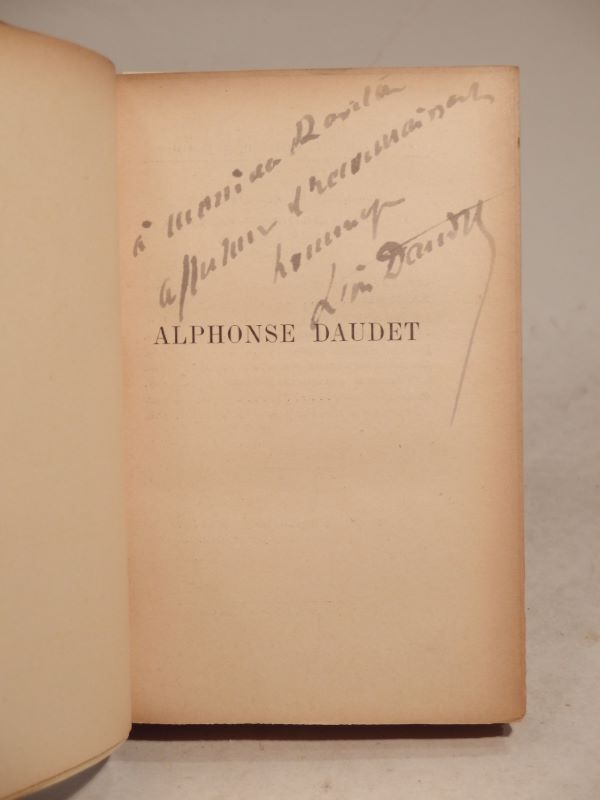 à monsieur
affectueux & reconnaissant
hommage
Léon Daudet
ALPHONSE DAUDET